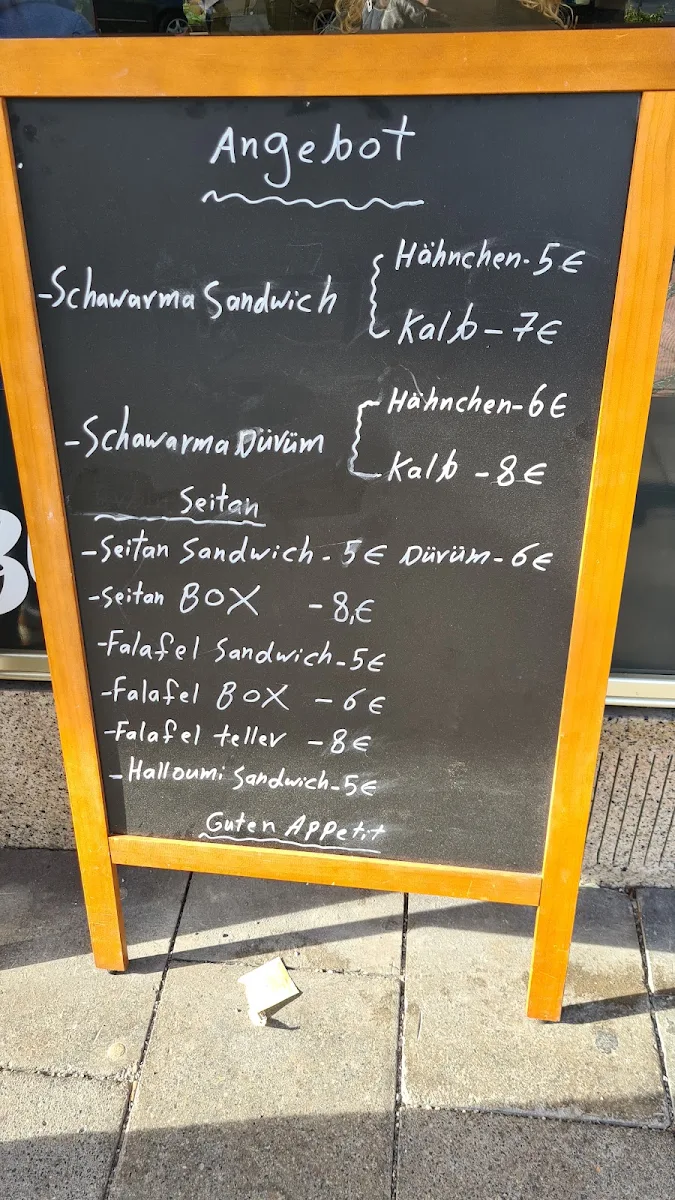 Angebot
-Schawarma Sandwich
Hähnchen-5€
Kalb-7€
-Schawarma Dürüm
Hähnchen-6€
Kalb-8€
Seitan
-Seitan Sandwich-5€ Dürüm-6€
-Seitan BOX -8,€
-Falafel Sandwich-5€
-Falafel BOX -6€
-Falafel teller -8€
-Halloumi Sandwich-5€
Guten Appetit